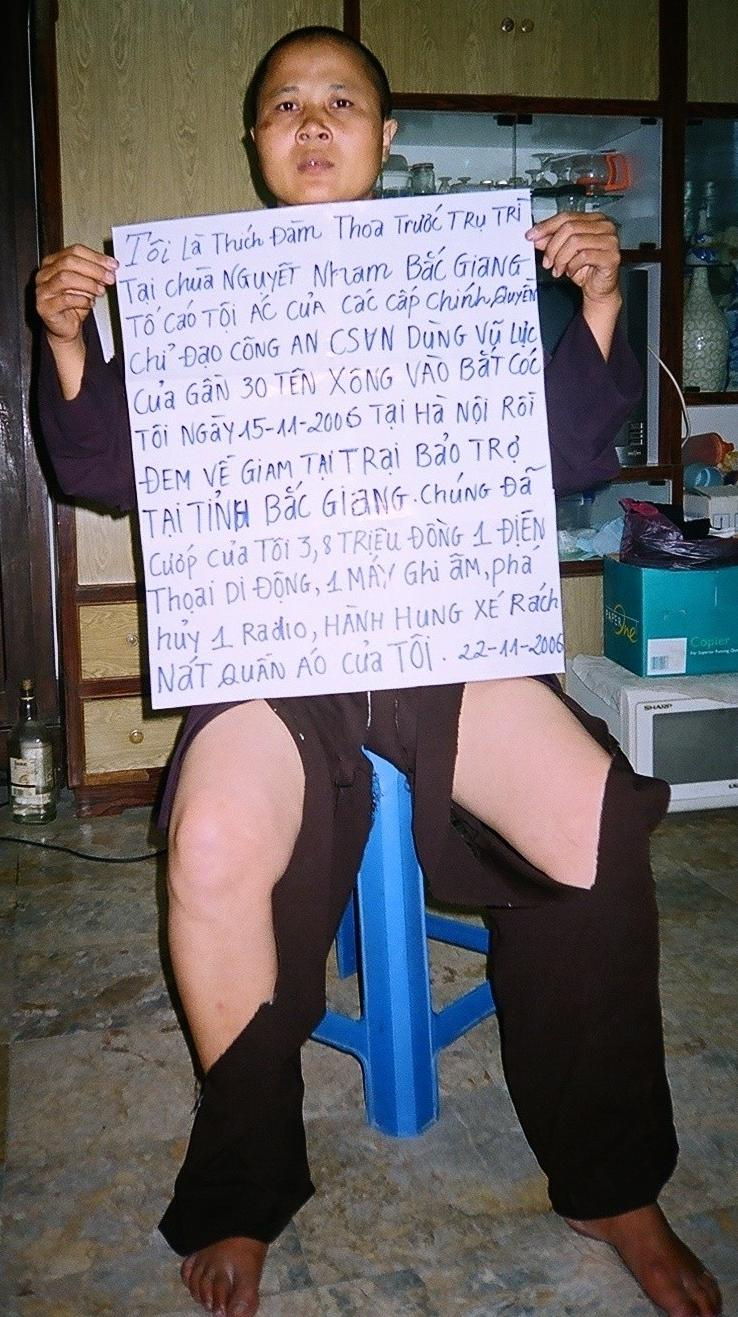 Tôi Là Thích Đàm Thoa Trước TRỤ TRÌ
Tại chùa NGUYỆT NHAM BẮC GIANG
TỐ CÁO TỘI ÁC CỦA CÁC CẤP CHÍNH QUYỀN
CHỈ ĐẠO CÔNG AN CSVN DÙNG VŨ LỰC
CỦA GẦN 30 TÊN XÔNG VÀO BẮT CÓC
TÔI NGÀY 15-11-2006 TẠI HÀ NỘI RỒI
ĐEM VỀ GIAM TẠI TRẠI BẢO TRỢ
TẠI TỈNH BẮC GIANG. CHÚNG ĐÃ
CƯỚP CỦA TÔI 3,8 TRIỆU ĐỒNG 1 ĐIỆN
THOẠI DI ĐỘNG, 1 MÁY GHI ÂM, phá
hủy 1 Radio, HÀNH HUNG XÉ RÁCH
NÁT QUẦN ÁO CỦA TÔI. 22-11-2006
PAPER One
Copier
SHARP